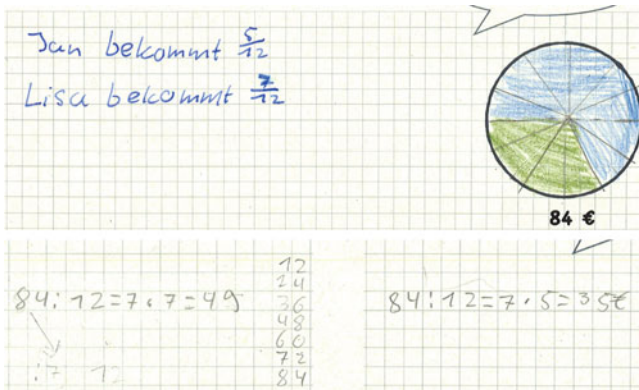 Jan bekommt 5/12
Lisa bekommt 7/12
84 €
84 : 12 = 7 · 7 = 49
: 7 12
12
24
36
48
60
72
84
84 : 12 = 7 · 5 = 35€